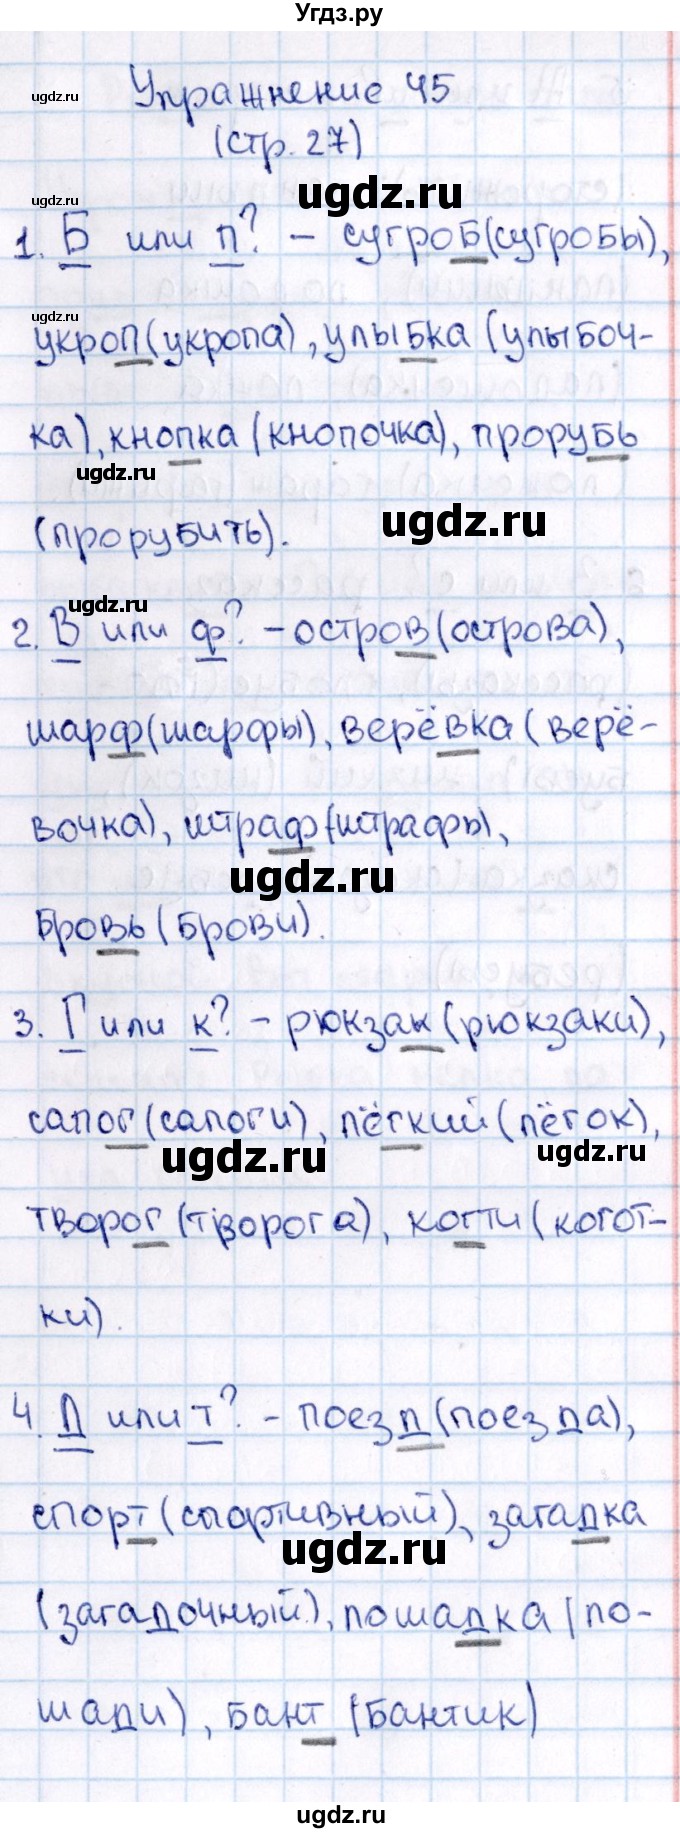 Угдз.ру
Упражнение 45
ugdz.ru
(стр. 27)
ugdz.ru
ugdz.ru
1. Б или п? – сугроб (сугробы),
ugdz.ru
укроп (укропа), улыбка (улыбоч-
ка), кнопка (кнопочка), прорубь
ugdz.ru
ugdz.ru
(прорубить).
ugdz.ru
2. В или ф? – остров (острова),
шарф (шарфы), верёвка (верё-
вочка), штраф (штрафы),
ugdz.ru
бровь (брови).
3. Г или к? – рюкзак (рюкзаки),
сапог (сапоги), лёгкий (лёгок),
ugdz.ru
ugdz.ru
творог (творога), когти (когот-
ки).
4. Д или т? – поезд (поезда),
спорт (спортивный), загадка
ugdz.ru
(загадочный), лошадка (ло-
шади), бант (бантик)
ugdz.ru